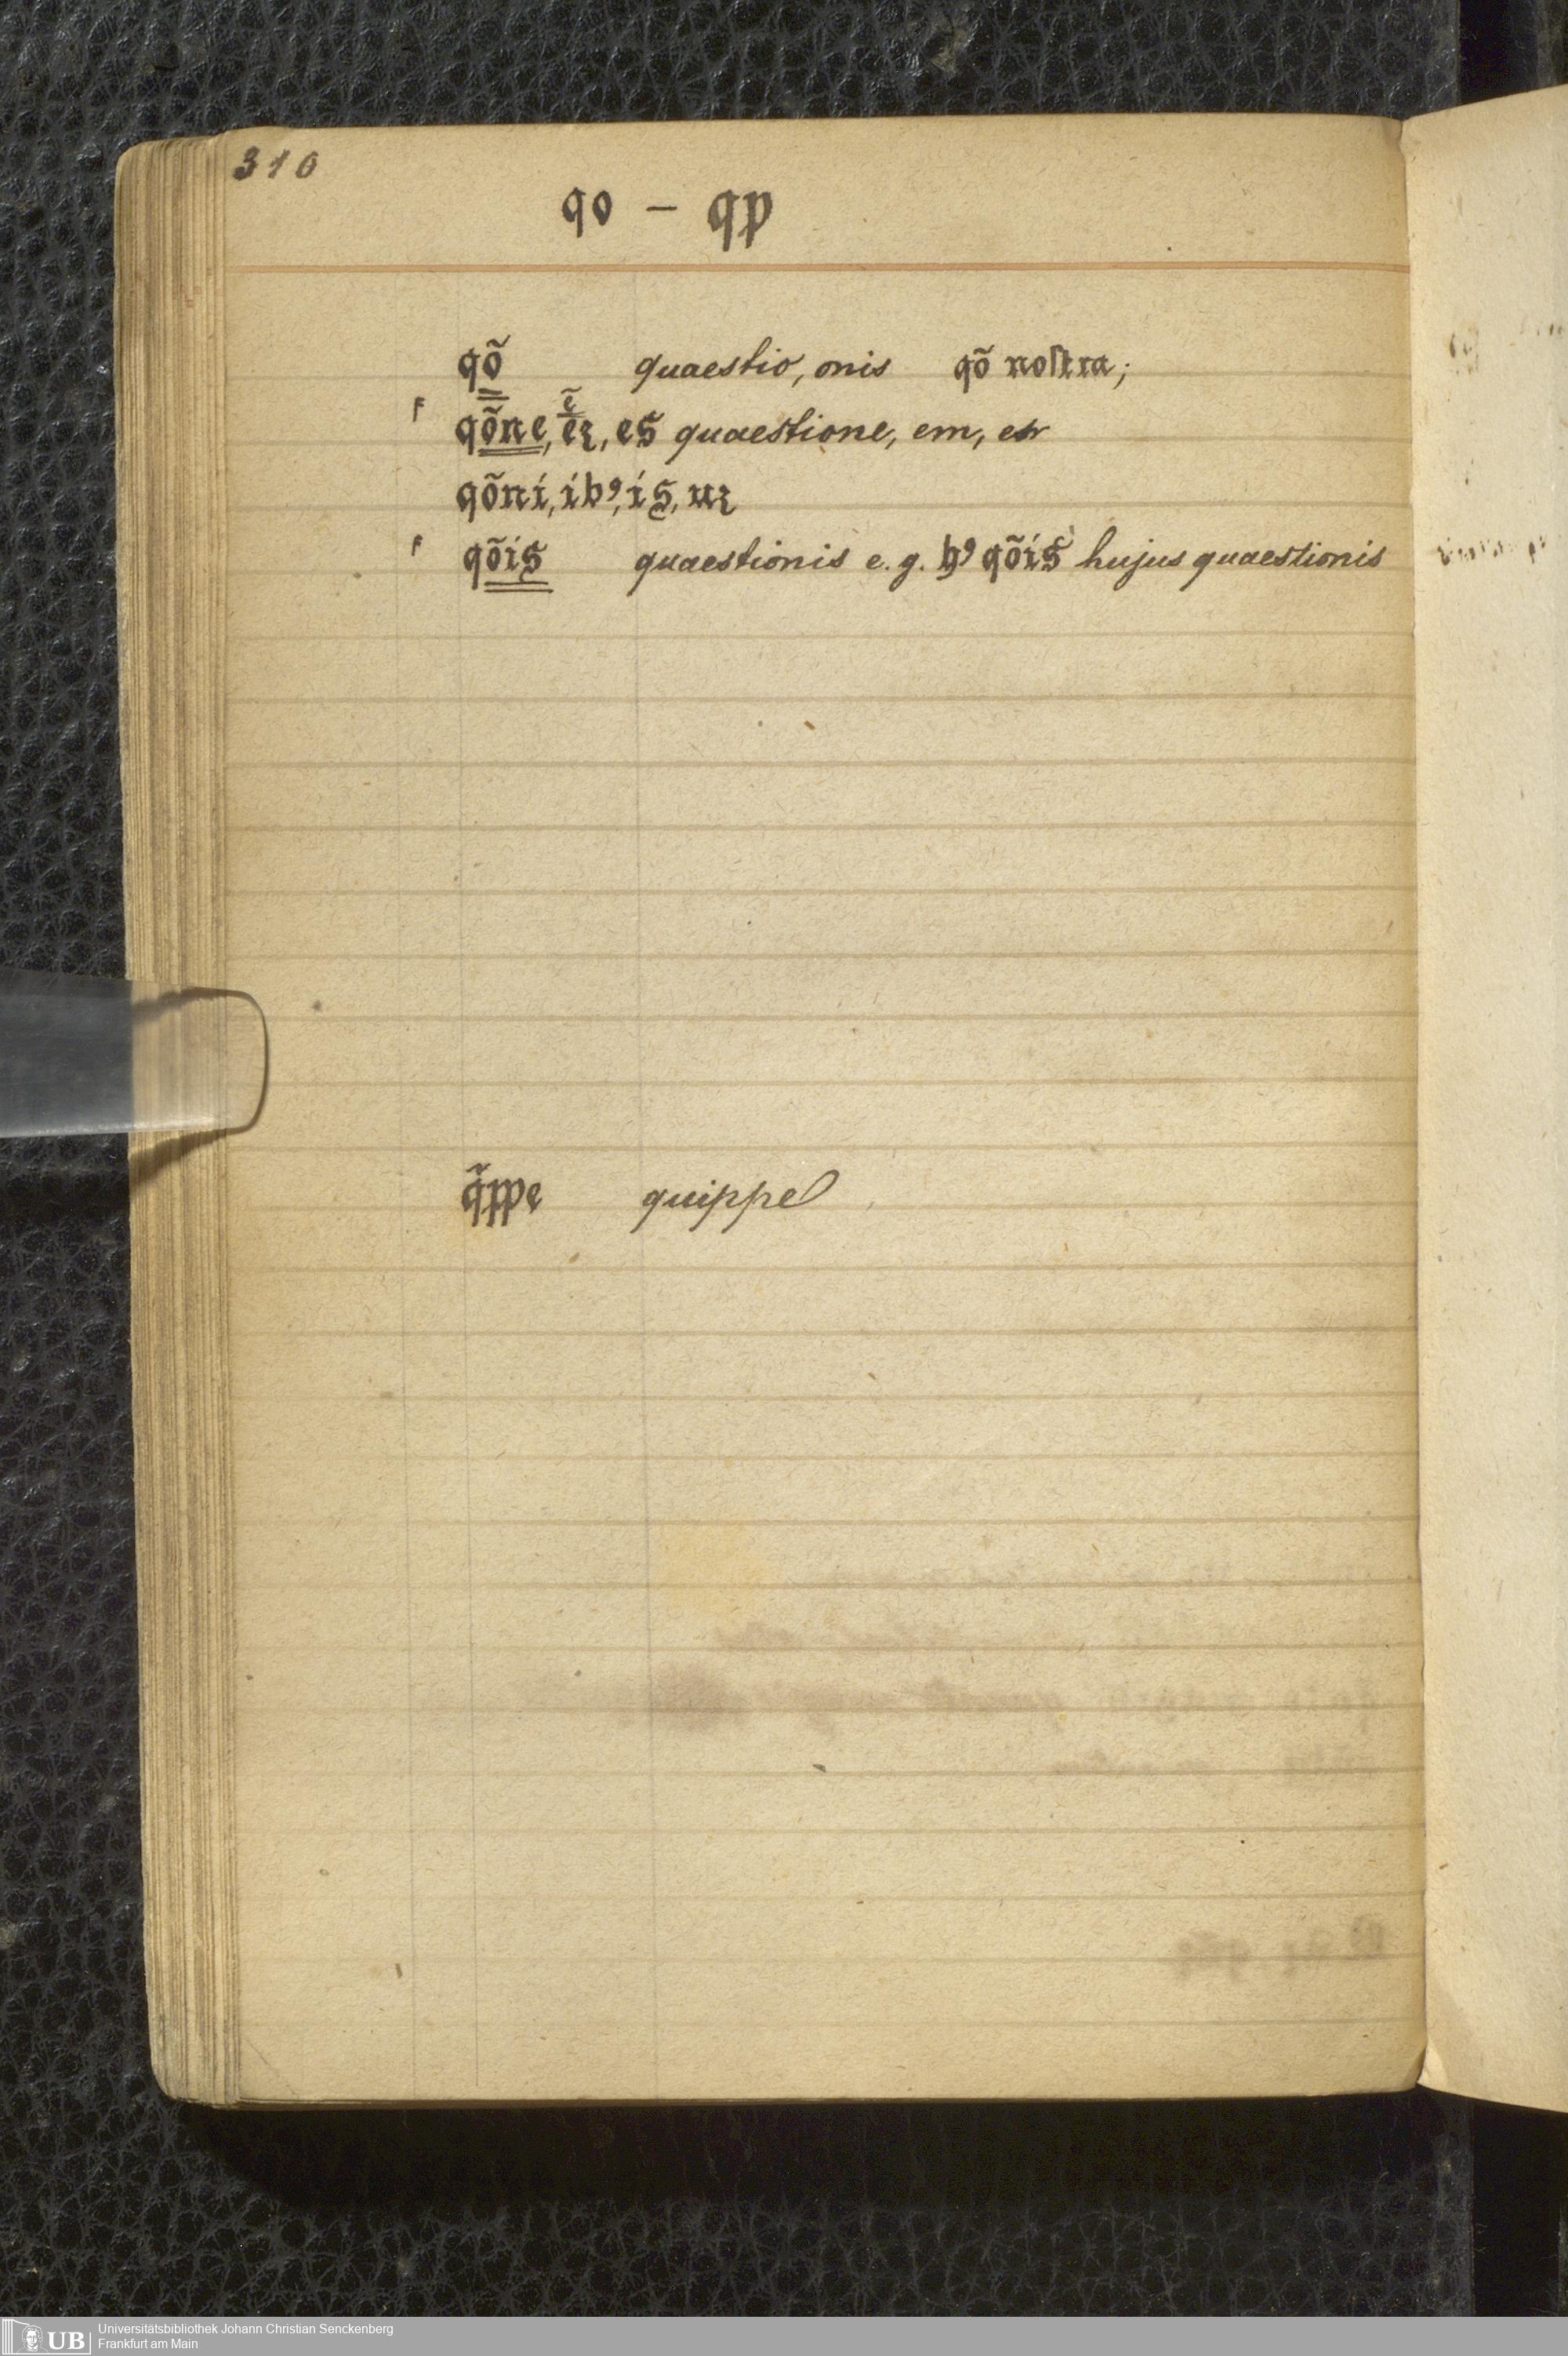 310
qo - qp
qõ quaestio, onis qõ noſtra;
qõne, ẽ eꝫ, es quaestione, em, es
qõni, ibꝰ, is, uꝫ
qõis quaestionis e. g. hꝰ qõis hujus quaestionis
q̃ppe quippe
UB Universitätsbibliothek Johann Christian Senckenberg
Frankfurt am Main